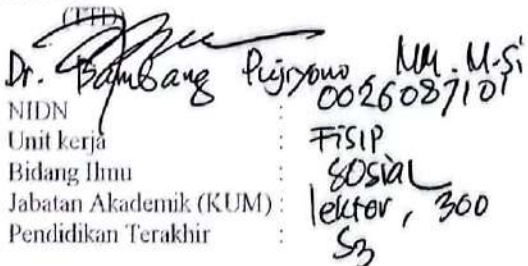 (TTD)
Dr. Bambang Pujiyono MM. M.Si
NIDN : 0026087101
Unit kerja : FISIP
Bidang Ilmu : SOSIAL
Jabatan Akademik (KUM) : lektor, 300
Pendidikan Terakhir : S3